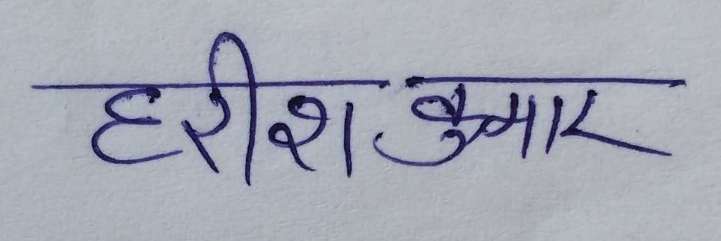 हरीश कुमार